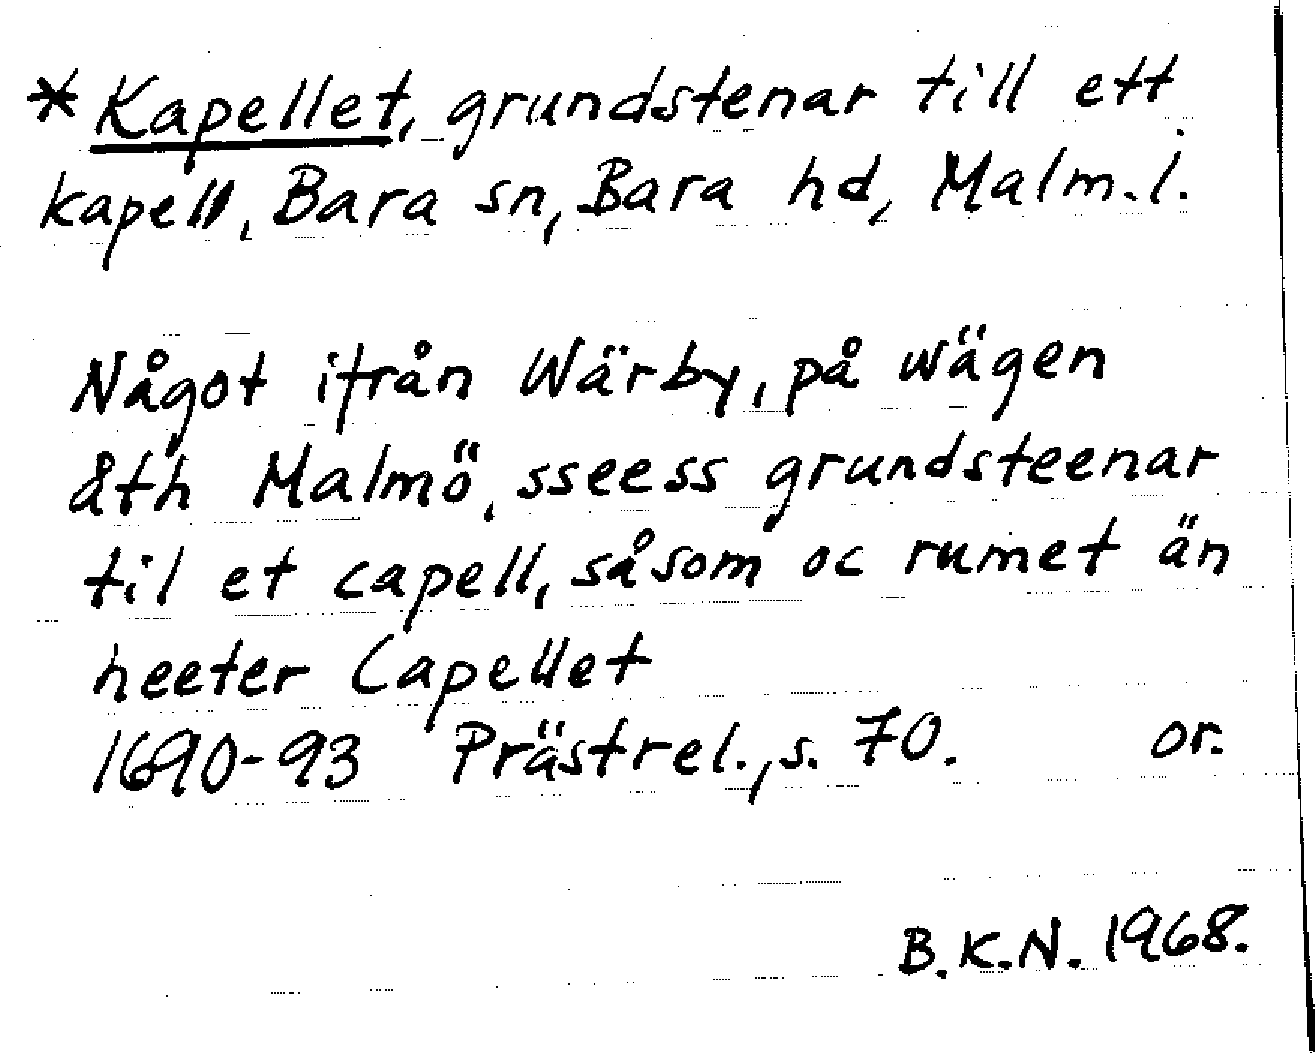 * Kapellet, grundstenar till ett
kapell, Bara sn, Bara hd, Malm.l.
Något ifrån Wärby, på wägen
åth Malmö, sseess grundsteenar
til et capell, såsom oc rumet än
heeter Capellet
1690-93 Prästrel., s. 70. or.
B.K.N. 1968.